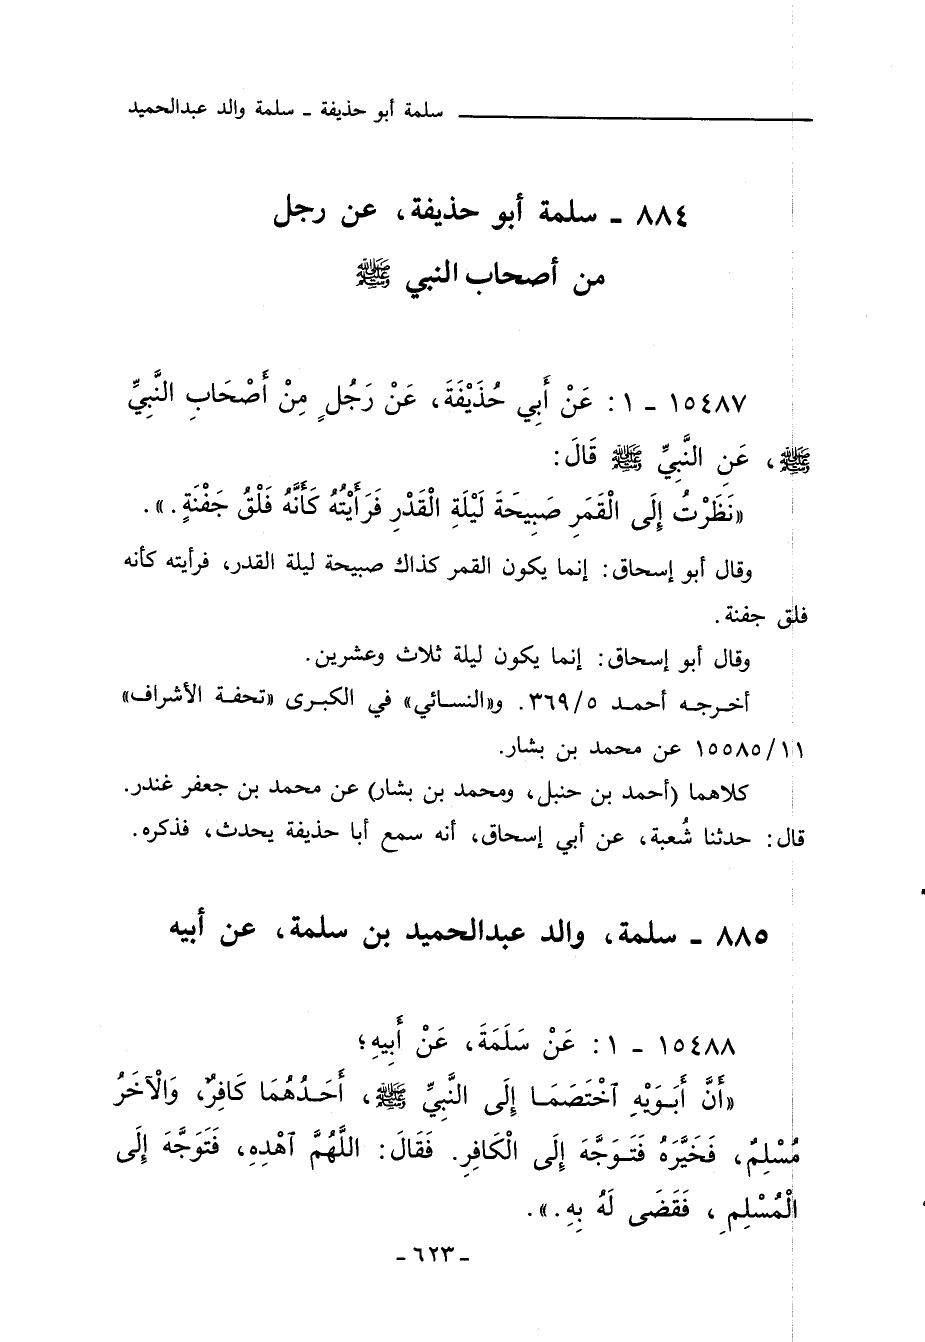 سلمة أبو حذيفة ـ سلمة والد عبدالحميد
٨٨٤ ـ سلمة أبو حذيفة، عن رجل
من أصحاب النبي ﷺ
١٥٤٨٧ ـ ١: عَنْ أَبِي حُذَيْفَةَ، عَنْ رَجُلٍ مِنْ أَصْحَابِ النَّبِيِّ
ﷺ، عَنِ النَّبِيِّ ﷺ قَالَ:
«نَظَرْتُ إِلَى الْقَمَرِ صَبِيحَةَ لَيْلَةِ الْقَدْرِ فَرَأَيْتُهُ كَأَنَّهُ فَلْقُ جَفْنَةٍ.».
وقال أبو إسحاق: إنما يكون القمر كذاك صبيحة ليلة القدر، فرأيته كأنه
فلق جفنة.
وقال أبو إسحاق: إنما يكون ليلة ثلاث وعشرين.
أخرجه أحمد ٣٦٩/٥. و«النسائي» في الكبرى «تحفة الأشراف»
١٥٥٨٥/١١ عن محمد بن بشار.
كلاهما (أحمد بن حنبل، ومحمد بن بشار) عن محمد بن جعفر غندر.
قال: حدثنا شُعبة، عن أبي إسحاق، أنه سمع أبا حذيفة يحدث، فذكره.
٨٨٥ ـ سلمة، والد عبدالحميد بن سلمة، عن أبيه
١٥٤٨٨ ـ ١: عَنْ سَلَمَةَ، عَنْ أَبِيهِ؛
«أَنَّ أَبَوَيْهِ ٱخْتَصَمَا إِلَى النَّبِيِّ ﷺ، أَحَدُهُمَا كَافِرٌ، وَالْآخَرُ
مُسْلِمٌ، فَخَيَّرَهُ فَتَوَجَّهَ إِلَى الْكَافِرِ. فَقَالَ: اللَّهُمَّ ٱهْدِهِ، فَتَوَجَّهَ إِلَى
الْمُسْلِمِ، فَقَضَى لَهُ بِهِ.».
ـ ٦٢٣ ـ